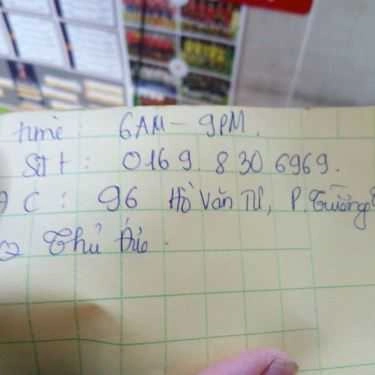 time : 6AM - 9PM.
Sđt : 0169.830 6969.
C : 96 Hồ Văn Tư, P. Trường
Q Thủ Đức.